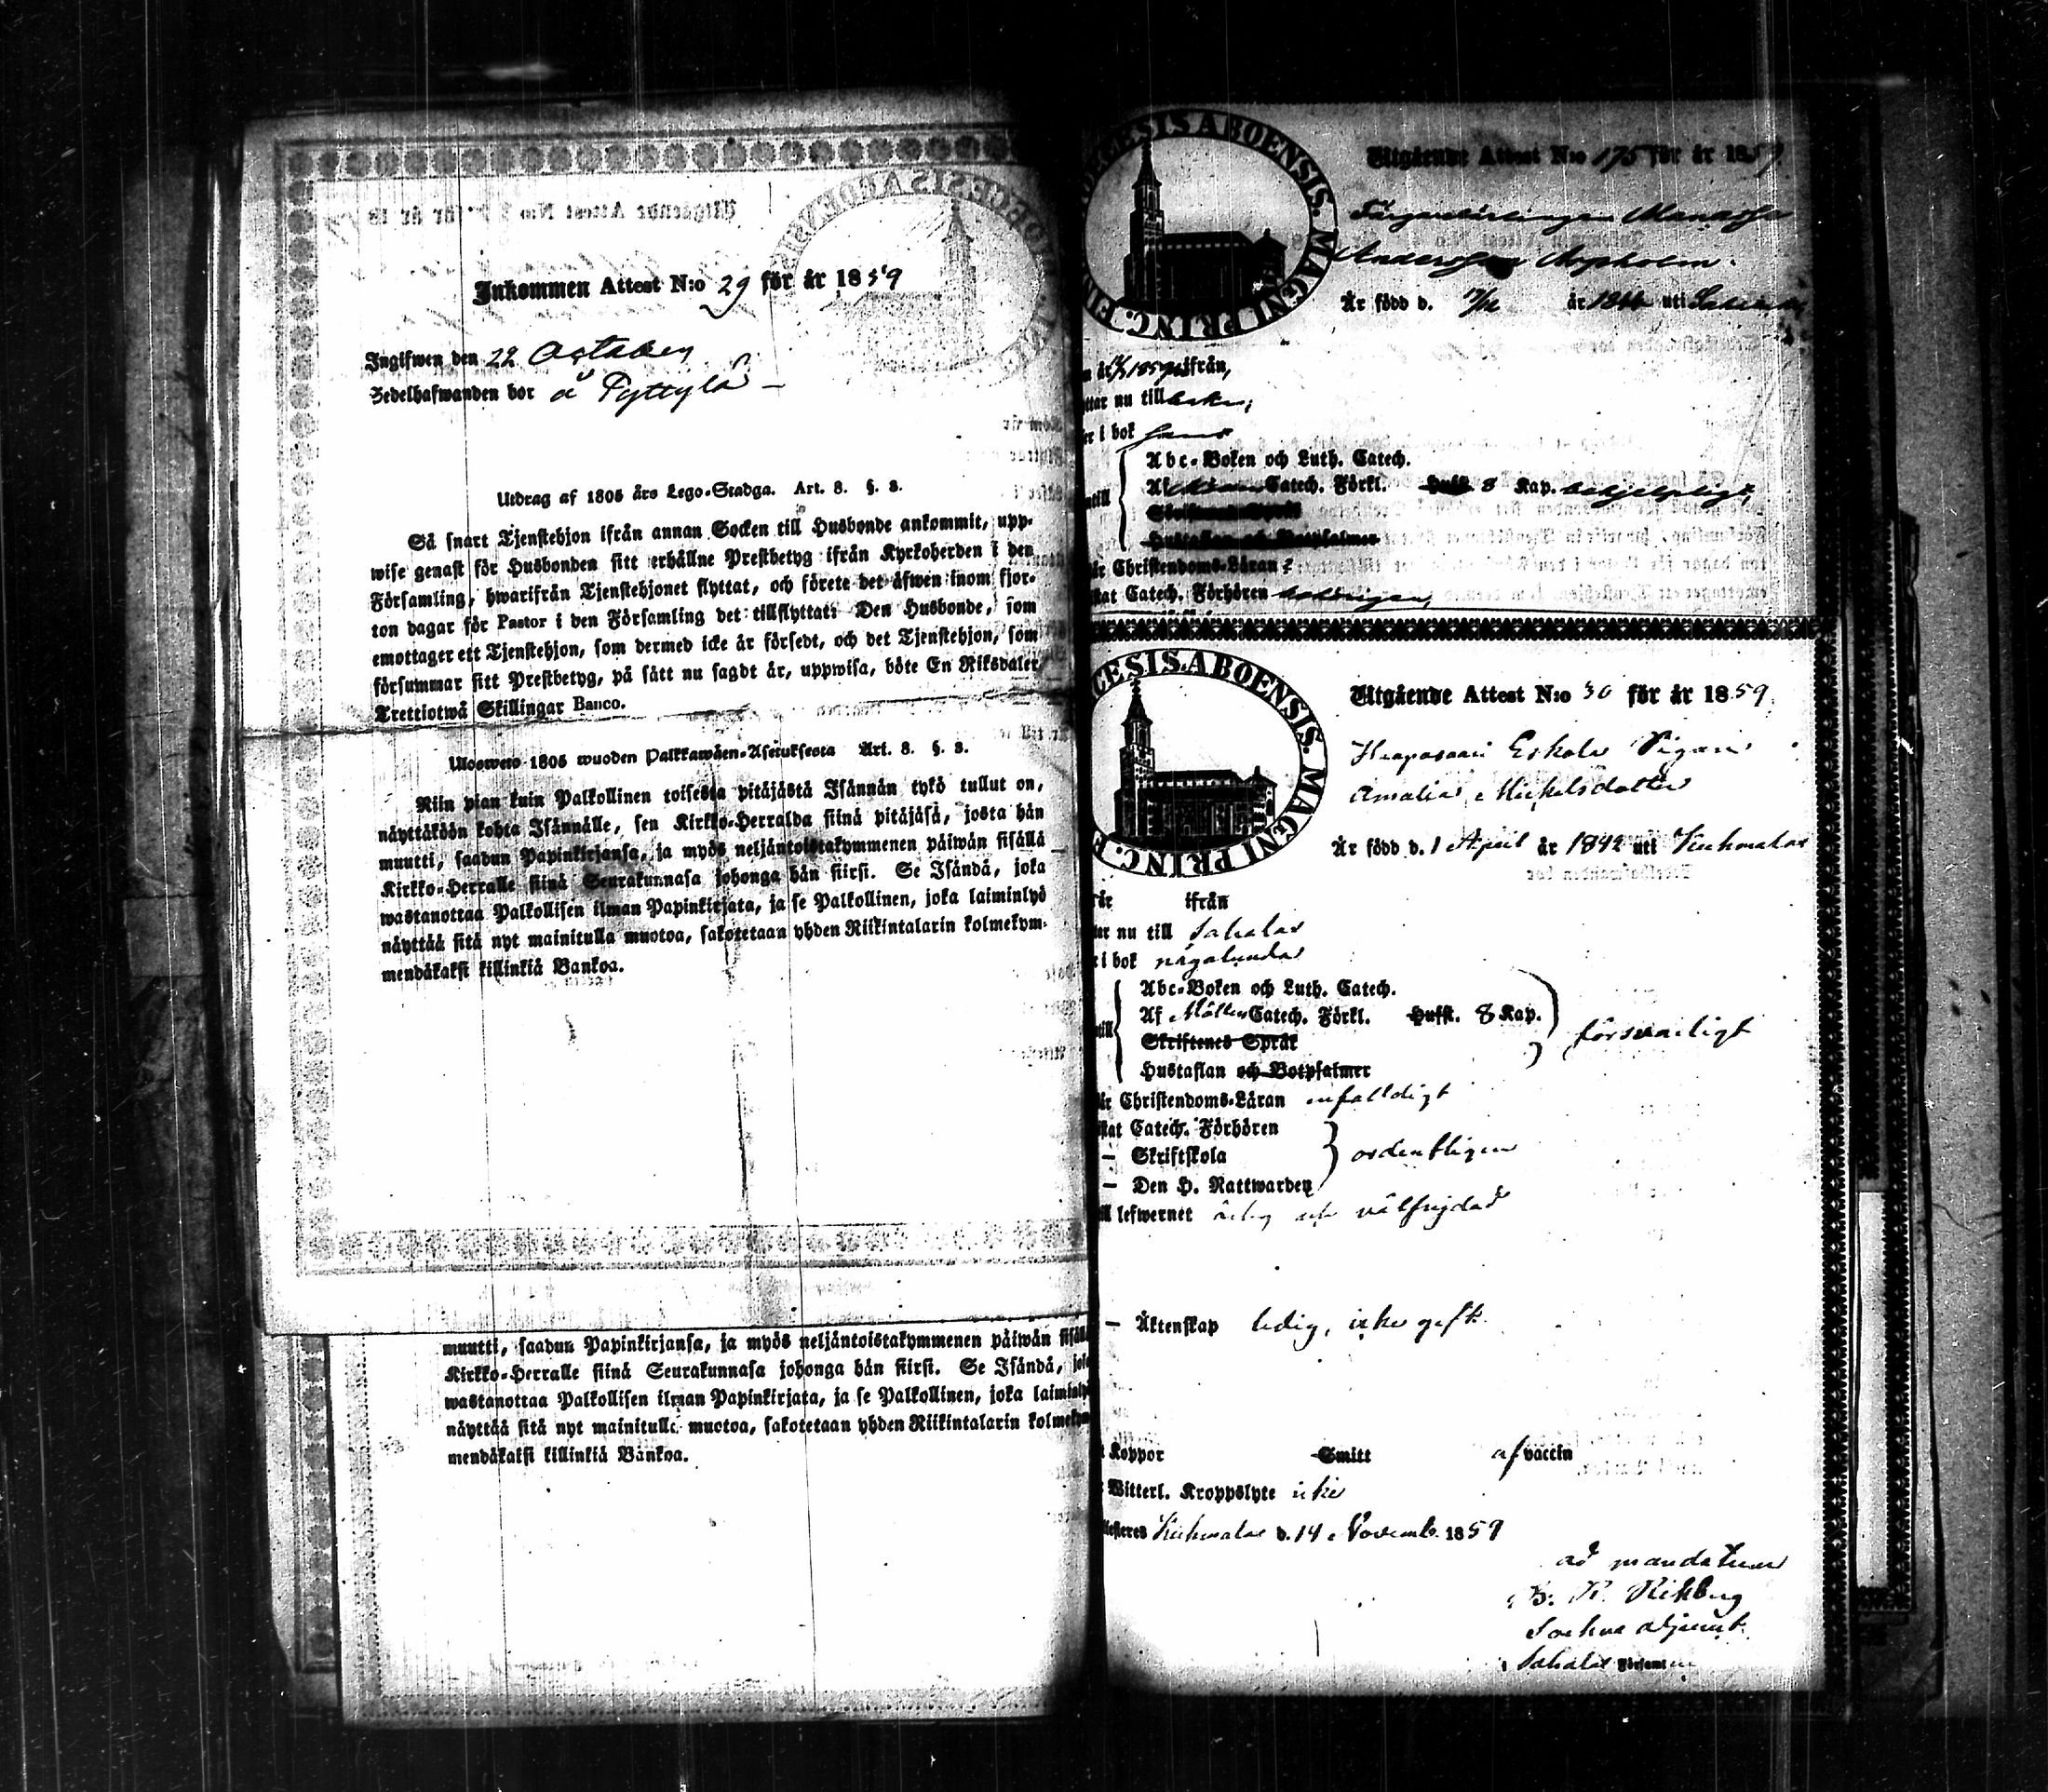 Inkommen Attest N:o 29 för år 1859
Ingifwen den 22 October
Sedelhafwanden bor å Pyttylä
Utdrag af 1805 års Lego-Stadga. Art. 8. §. 3.
Så snart Tjenstehjon ifrån annan Socken till Husbonde ankommit, upp-
wise genast för Husbonden sitt erhållne Prestbetyg ifrån Kyrkoherden i den
Församling, hwarifrån Tjenstehjonet flyttat, och förete det äfwen inom fjor-
ton dagar för Pastor i den Församling det tillflyttat: Den Husbonde, som
emottager ett Tjenstehjon, som dermed icke är försedt, och det Tjenstehjon, som
försummar sitt Prestbetyg, på sätt nu sagdt är, uppwisa, böte En Riksdaler
Trettiotwå Skillingar Banco.
Uloswето 1805 wuoden Palkkawäen-Asetuksesta Art. 8. §. 3.
Niin pian kuin Palkollinen toisesta pitäjästä Isännän tykö tullut on,
näyttäköön kohta Isännälle, sen Kirkko-Herralda siinä pitäjäsä, josta hän
muutti, saadun Papinkirjansa, ja myös neljäntoistakymmenen päiwän sisällä
Kirkko-Herralle siinä Seurakunnasa johonga hän siirsi. Se Isändä, joka
wastanottaa Palkollisen ilman Papinkirjata, ja se Palkollinen, joka laiminlyö
näyttää sitä nyt mainitulla muotoa, sakotetaan yhden Riikintalarin kolmekym-
mendäkaksi killinkiä Bankoa.
muutti, saadun Papinkirjansa, ja myös neljäntoistakymmenen päiwän sisällä
Kirkko-Herralle siinä Seurakunnasa johonga hän siirsi. Se Isändä, jok
wastanottaa Palkollisen ilman Papinkirjata, ja se Palkollinen, joka laiminly
näyttää sitä nyt mainitulla muotoa, sakotetaan yhden Riikintalarin kolmekym
mendäkaksi killinkiä Bankoa.
ECESIS ABOENSIS. MAGNI PRINC. FI
Utgående Attest N:o 175 för år 1859
Är född d. år uti
ifrån,
ttar nu till
er i bok
Abc-Boken och Luth. Catech.
Af Catech. Förkl. Husf. 8 Kap.
Hustaflan och Botpsalmer
är Christendoms-Läran
stat Catech. Förhören
ECESIS ABOENSIS. MAGNI PRINC. F
Utgående Attest N:o 30 för år 1859
Haapasaari Eskola Pigan
Amalia Michelsdotter
Är född d. 1 April år 1842 uti Kuhmalax
är ifrån
ter nu till Sahalax
r i bok någalunda
Abc-Boken och Luth. Catech.
ntill Af Möllers Catech. Förkl. Husft. 8 Kap.
Skriftenes Språk försvarligt
Hustaflan och Botpsalmer
är Christendoms-Läran enfaldigt
stat Catech. Förhören
— Skriftskola ordentligen
— Den H. Nattwarden
ill lefwernet ärlig och välfrejdad
— Äktenskap ledig, icke gift
t Koppor Smitt af vaccin
Witterl. Kroppslyte icke
ttesteres Kuhmalax d. 14 Novemb. 1859
ad mandatum
Sockne adjunkt
Sahalax Församl